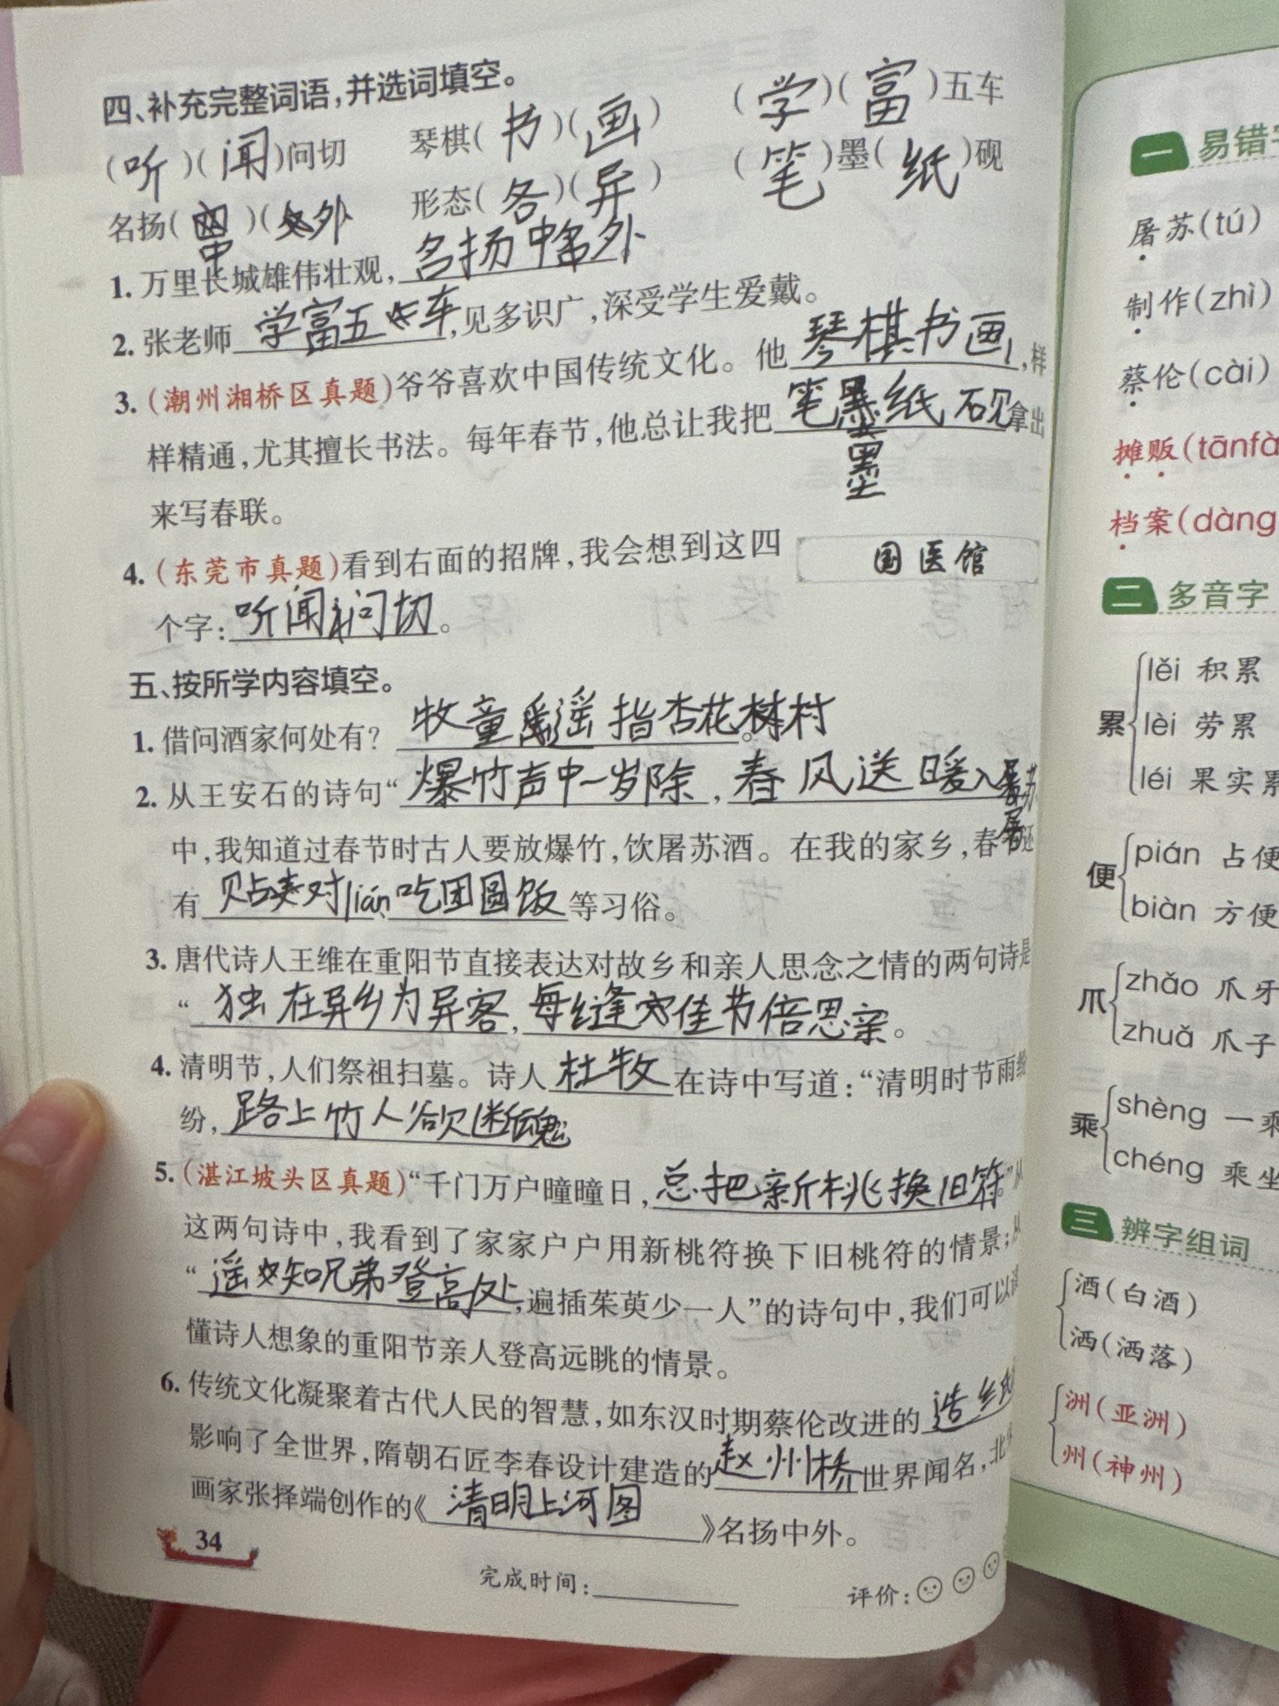 四、补充完整词语，并选词填空。
(听)(闻)问切 琴棋(书)(画) (学)(富)五车
名扬(中)(外) 形态(各)(异) (笔)墨(纸)砚
1. 万里长城雄伟壮观，名扬中外
2. 张老师学富五车，见多识广，深受学生爱戴。
3. (潮州湘桥区真题)爷爷喜欢中国传统文化。他琴棋书画，样
样精通，尤其擅长书法。每年春节，他总让我把笔墨纸砚拿出
墨
来写春联。
4. (东莞市真题)看到右面的招牌，我会想到这四
国医馆
个字：听闻问切。
五、按所学内容填空。
1. 借问酒家何处有？牧童遥指杏花村。
2. 从王安石的诗句“爆竹声中一岁除，春风送暖入屠苏
中，我知道过春节时古人要放爆竹，饮屠苏酒。在我的家乡，春
有贴对lián、吃团圆饭等习俗。
3. 唐代诗人王维在重阳节直接表达对故乡和亲人思念之情的两句诗是
“独在异乡为异客，每缝佳节倍思亲。
4. 清明节，人们祭祖扫墓。诗人杜牧在诗中写道：“清明时节雨纷
纷，路上竹人欲断魂
5. (湛江坡头区真题)“千门万户曈曈日，总把新桃换旧符。”从
这两句诗中，我看到了家家户户用新桃符换下旧桃符的情景；从
“遥知兄弟登高处，遍插茱萸少一人”的诗句中，我们可以读
懂诗人想象的重阳节亲人登高远眺的情景。
6. 传统文化凝聚着古代人民的智慧，如东汉时期蔡伦改进的造纸
影响了全世界，隋朝石匠李春设计建造的赵州桥世界闻名，北
画家张择端创作的《清明上河图》名扬中外。
34
完成时间：
评价：
一 易错字
屠苏(tú)
制作(zhì)
蔡伦(cài)
摊贩(tānfà
档案(dàng
二 多音字
累
lěi 积累
lèi 劳累
léi 果实累
便
pián 占便
biàn 方便
爪
zhǎo 爪牙
zhuǎ 爪子
乘
shèng 一乘
chéng 乘坐
三 辨字组词
酒(白酒)
洒(洒落)
洲(亚洲)
州(神州)